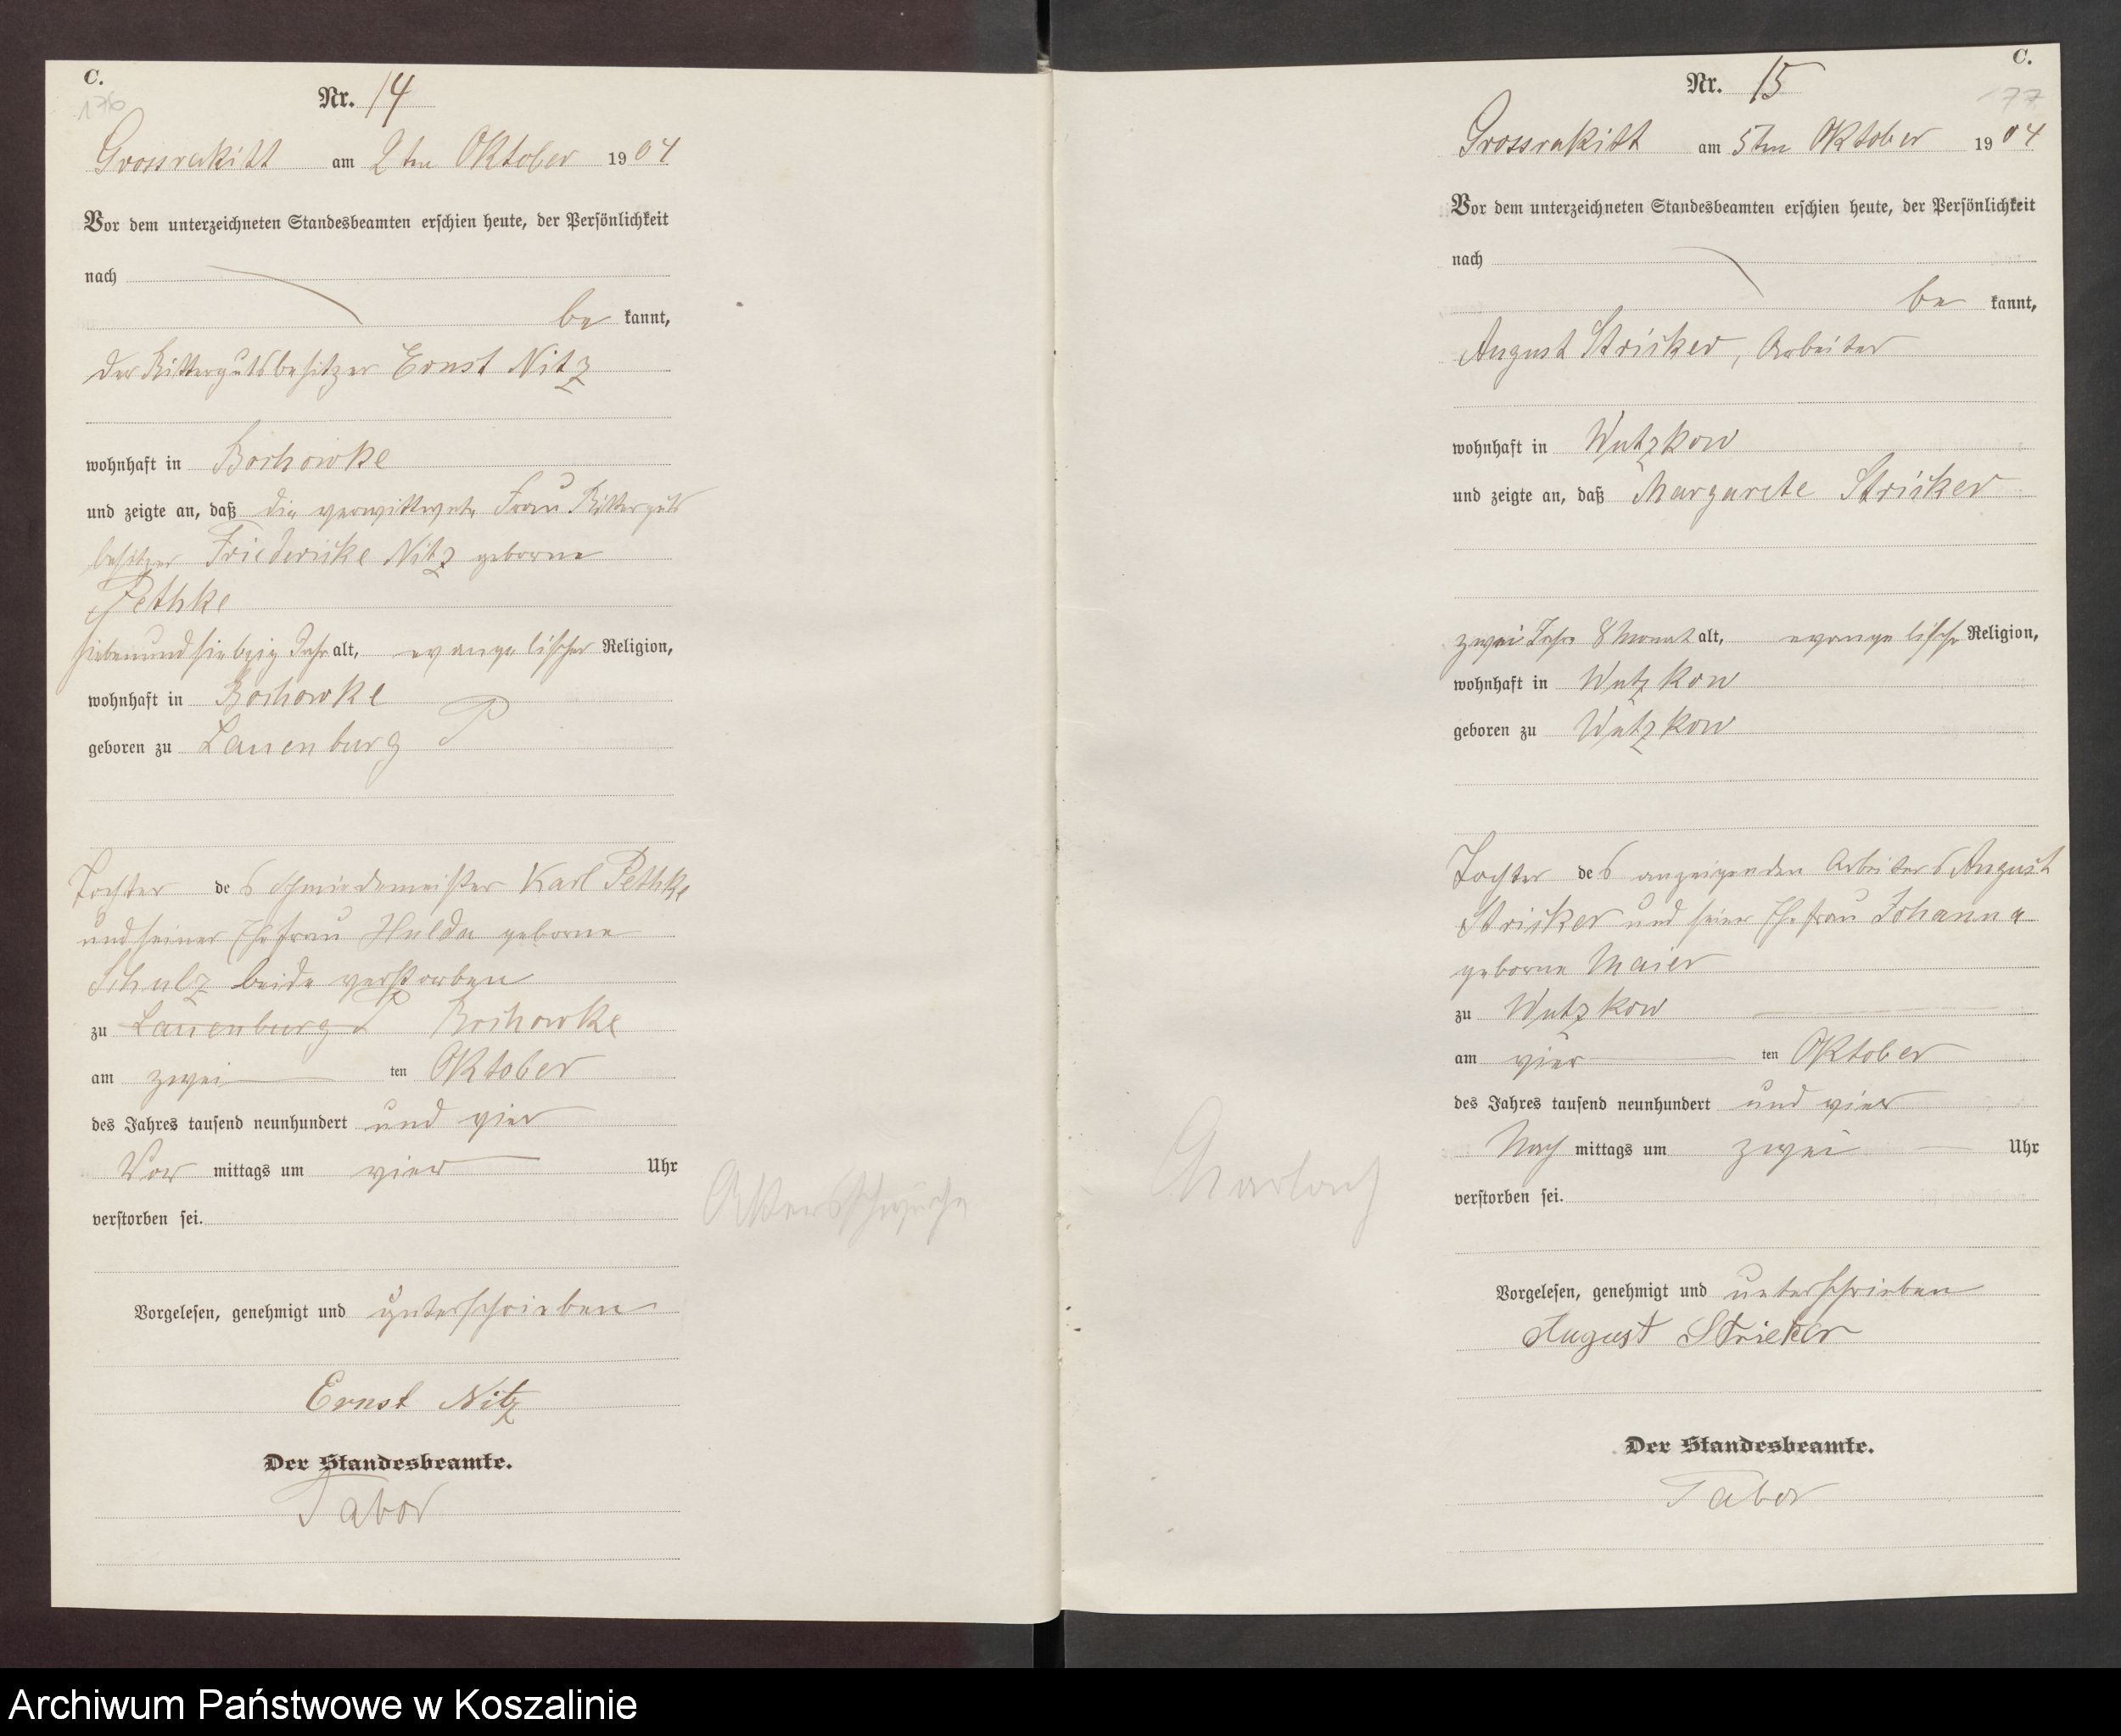 C.
176
Nr. 14
Grossrakitt am 2ten Oktober 1904
Vor dem unterzeichneten Standesbeamten erschien heute, der Persönlichkeit
nach
be kannt,
der Rittergutsbesitzer Ernst Nitz
wohnhaft in Bochowke
und zeigte an, daß die verwittwete Frau Ritterguts
besitzer Friedericke Nitz geborne
Pethke
siebenundsiebzig Jahr alt, evangelischer Religion,
wohnhaft in Bochowke
geboren zu Lauenburg P
Tochter des Schmiedemeister Karl Pethke
und seiner Ehefrau Hulda geborne
Schulz beide verstorben
zu Lauenburg P Bochowke
am zwei ten Oktober
des Jahres tausend neunhundert und vier
Vor mittags um vier Uhr
verstorben sei.
Altersschwäche
Vorgelesen, genehmigt und unterschrieben
Ernst Nitz
Der Standesbeamte.
Tabor
C.
77
Nr. 15
Grossrakitt am 5ten Oktober 1904
Vor dem unterzeichneten Standesbeamten erschien heute, der Persönlichkeit
nach
be kannt,
August Stricker, Arbeiter
wohnhaft in Wutzkow
und zeigte an, daß Margarete Stricker
zwei Jahr 8 Monat alt, evangelische Religion,
wohnhaft in Wutzkow
geboren zu Wutzkow
Tochter des anzeigenden Arbeiters August
Stricker und seiner Ehefrau Johanna
geborne Maier
zu Wutzkow
am vier ten Oktober
des Jahres tausend neunhundert und vier
Nach mittags um zwei Uhr
verstorben sei.
Scharlach
Vorgelesen, genehmigt und unterschrieben
August Stricker
Der Standesbeamte.
Tabor
Archiwum Państwowe w Koszalinie